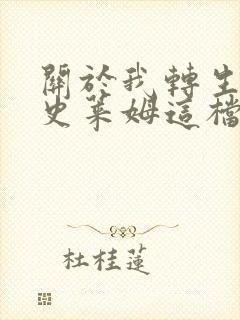 關於我轉生
史萊姆這檔
杜桂蓮